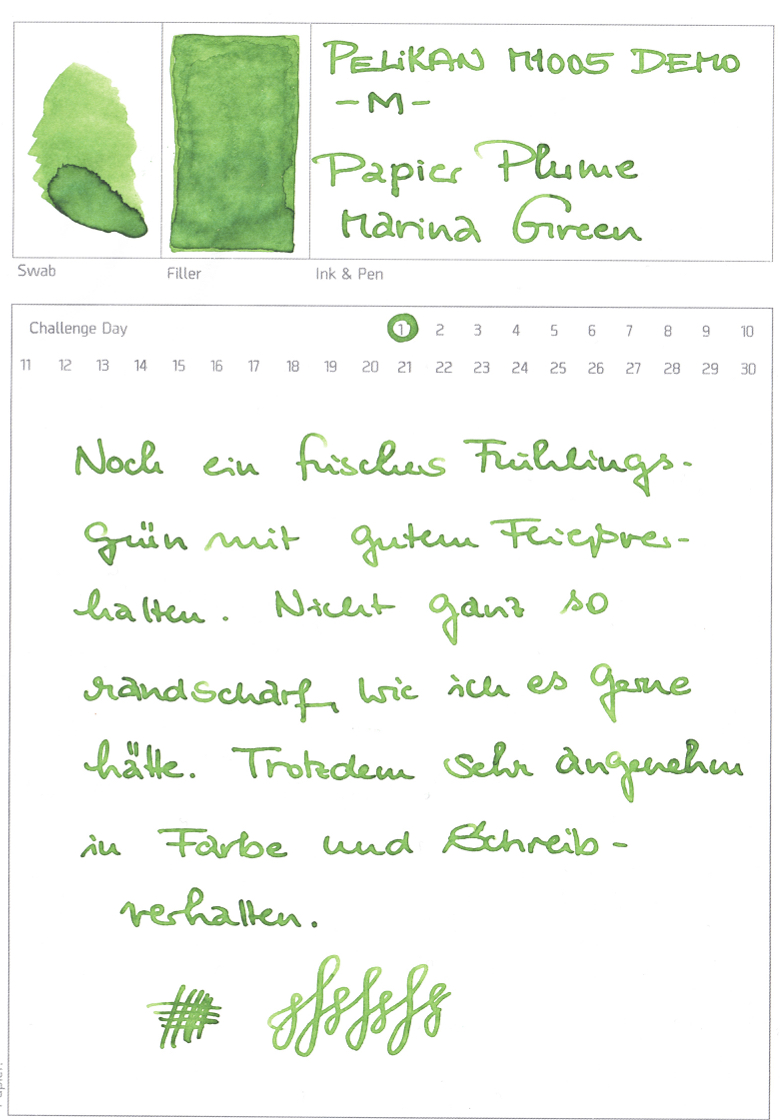 PELiKAN M1005 DEMO
-M-
Papier Plume
Marina Green
Swab
Filler
Ink & Pen
Challenge Day
1 2 3 4 5 6 7 8 9 10
11 12 13 14 15 16 17 18 19 20 21 22 23 24 25 26 27 28 29 30
Noch ein frisches Frühlings-
grün mit gutem Fließver-
halten. Nicht ganz so
randscharf, wie ich es gerne
hätte. Trotzdem sehr angenehm
in Farbe und Schreib-
verhalten.